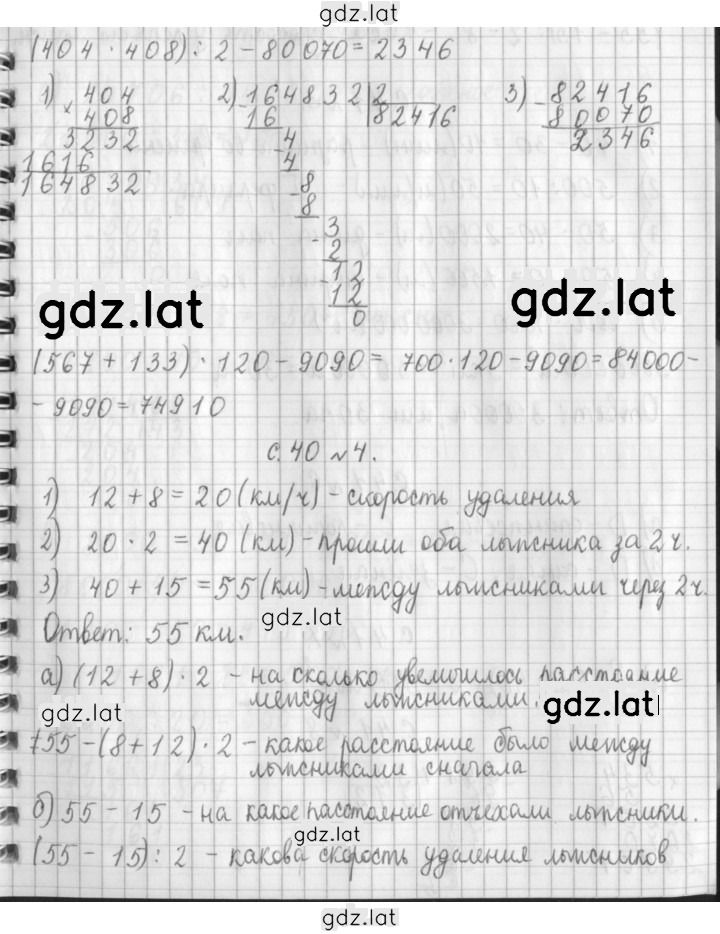 gdz.lat
(404 · 408) : 2 - 80070 = 2346
1) 404 2) 164832 | 2 3) 82416
× 408 - 16 82416 - 80070
3232 4 2346
1616 - 4
164832 8
- 8
3
- 2
12
12
0
gdz.lat gdz.lat
(567 + 133) · 120 - 9090 = 700 · 120 - 9090 = 84000 -
- 9090 = 74910
с. 40 №4.
1) 12 + 8 = 20 (км/ч) - скорость удаления
2) 20 · 2 = 40 (км) - прошли оба лыжника за 2 ч.
3) 40 + 15 = 55 (км) - между лыжниками через 2 ч.
gdz.lat
Ответ: 55 км.
а) (12 + 8) · 2 - на сколько увеличилось расстояние
между лыжниками.
gdz.lat gdz.lat
55 - (8 + 12) · 2 - какое расстояние было между
лыжниками сначала
б) 55 - 15 - на какое расстояние отъехали лыжники.
gdz.lat
(55 - 15) : 2 - какова скорость удаления лыжников
gdz.lat